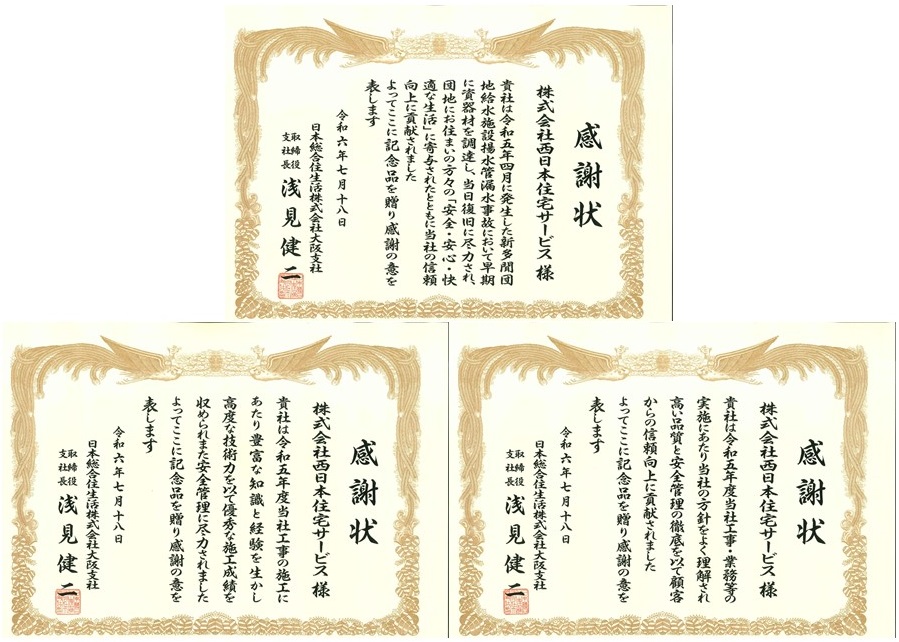 感謝状
株式会社西日本住宅サービス 様
貴社は令和五年四月に発生した新多聞団
地給水施設揚水管漏水事故において早期
に資器材を調達し、当日復旧に尽力され、
団地にお住まいの方々の「安全・安心・快
適な生活」に寄与されたとともに当社の信頼
向上に貢献されました
よってここに記念品を贈り感謝の意を
表します
令和六年七月十八日
日本総合住生活株式会社大阪支社
取締役
支社長 浅見健二
感謝状
株式会社西日本住宅サービス 様
貴社は令和五年度当社工事の施工に
あたり豊富な知識と経験を生かし
高度な技術力を以て優秀な施工成績を
収められまた安全管理に尽力されました
よってここに記念品を贈り感謝の意を
表します
令和六年七月十八日
日本総合住生活株式会社大阪支社
取締役
支社長 浅見健二
感謝状
株式会社西日本住宅サービス 様
貴社は令和五年度当社工事・業務等の
実施にあたり当社の方針をよく理解され
高い品質と安全管理の徹底を以て顧客
からの信頼向上に貢献されました
よってここに記念品を贈り感謝の意を
表します
令和六年七月十八日
日本総合住生活株式会社大阪支社
取締役
支社長 浅見健二